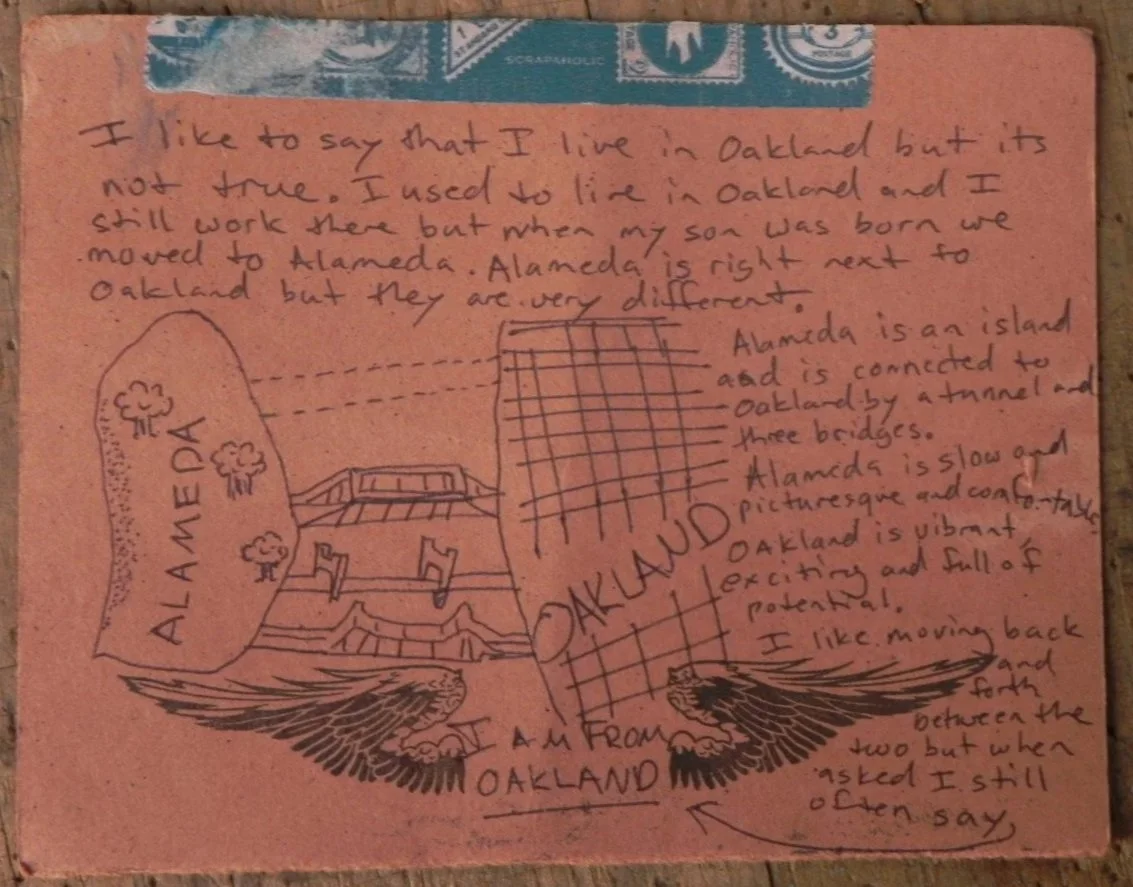 SCRAPAHOLIC
I like to say that I live in Oakland but its
not true. I used to live in Oakland and I
still work there but when my son was born we
moved to Alameda. Alameda is right next to
Oakland but they are very different.
Alameda is an island
and is connected to
Oakland by a tunnel and
three bridges.
Alameda is slow and
picturesque and comfortable
Oakland is vibrant,
exciting and full of
potential.
I like moving back
and
forth
between the
two but when
asked I still
often say,
ALAMEDA
OAKLAND
I AM FROM
OAKLAND